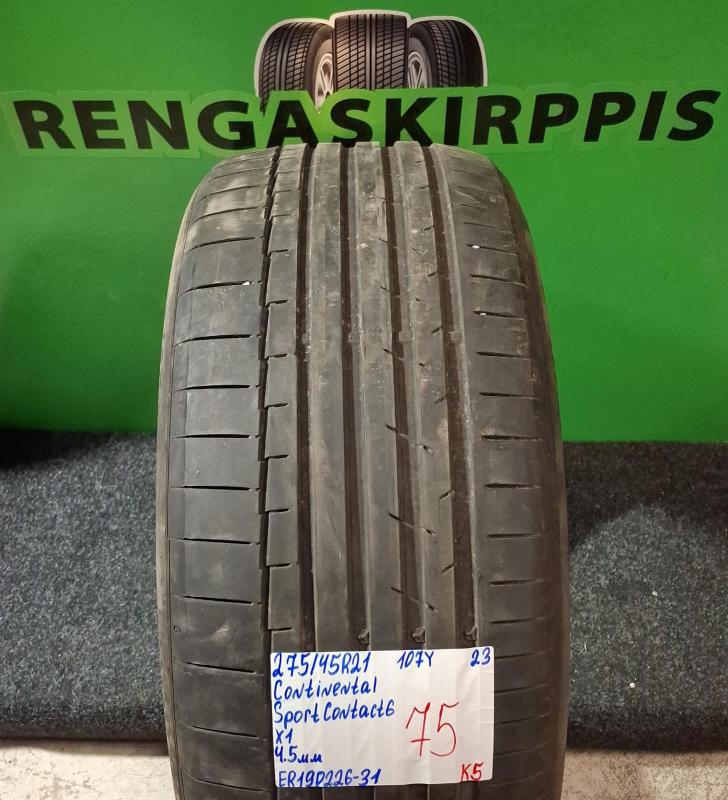 RENGASKIRPPIS
275/45R21 107Y 23
Continental
SportContact6
x1
4.5мм
75
ER19D226-31 K5